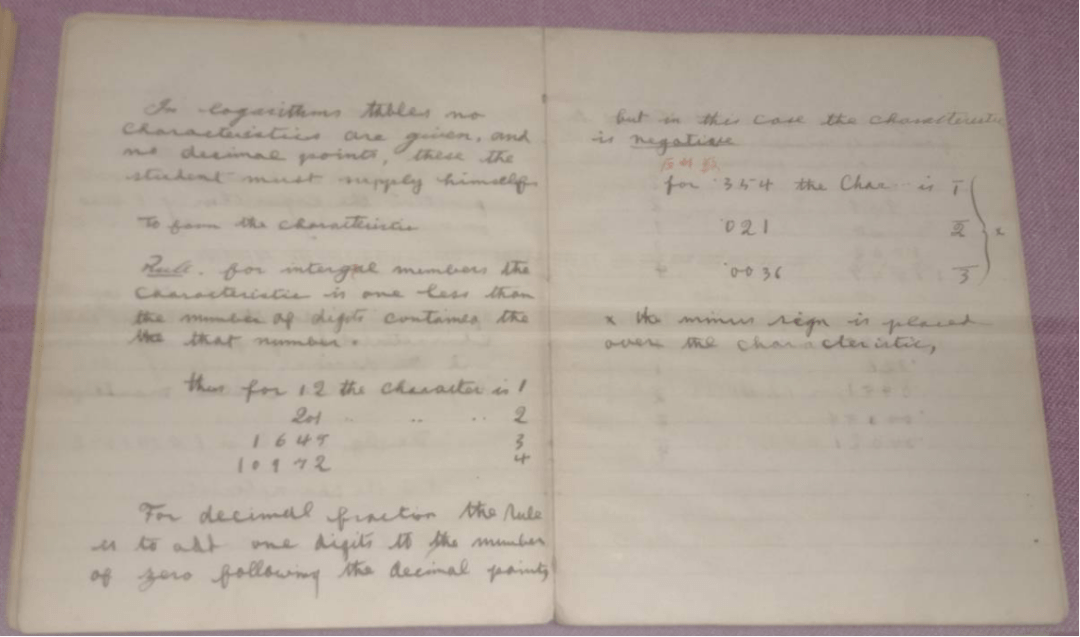 In logarithms tables no
Characteristics are given, and
no decimal points, these the
student must supply himself
To form the characteristic
Rule. for intergral members the
Characteristic is one less than
the number of digits contained the
the that number.
thus for 12 the character is 1
201 " " " 2
1645 3
10972 4
For decimal fraction the Rule
is to add one digits to the number
of zero following the decimal points
but in this case the characteristic
is negative
for ·354 the Char... is 1̅
·021 2̅
·0036 3̅
x
x the minus sign is placed
over the characteristic,